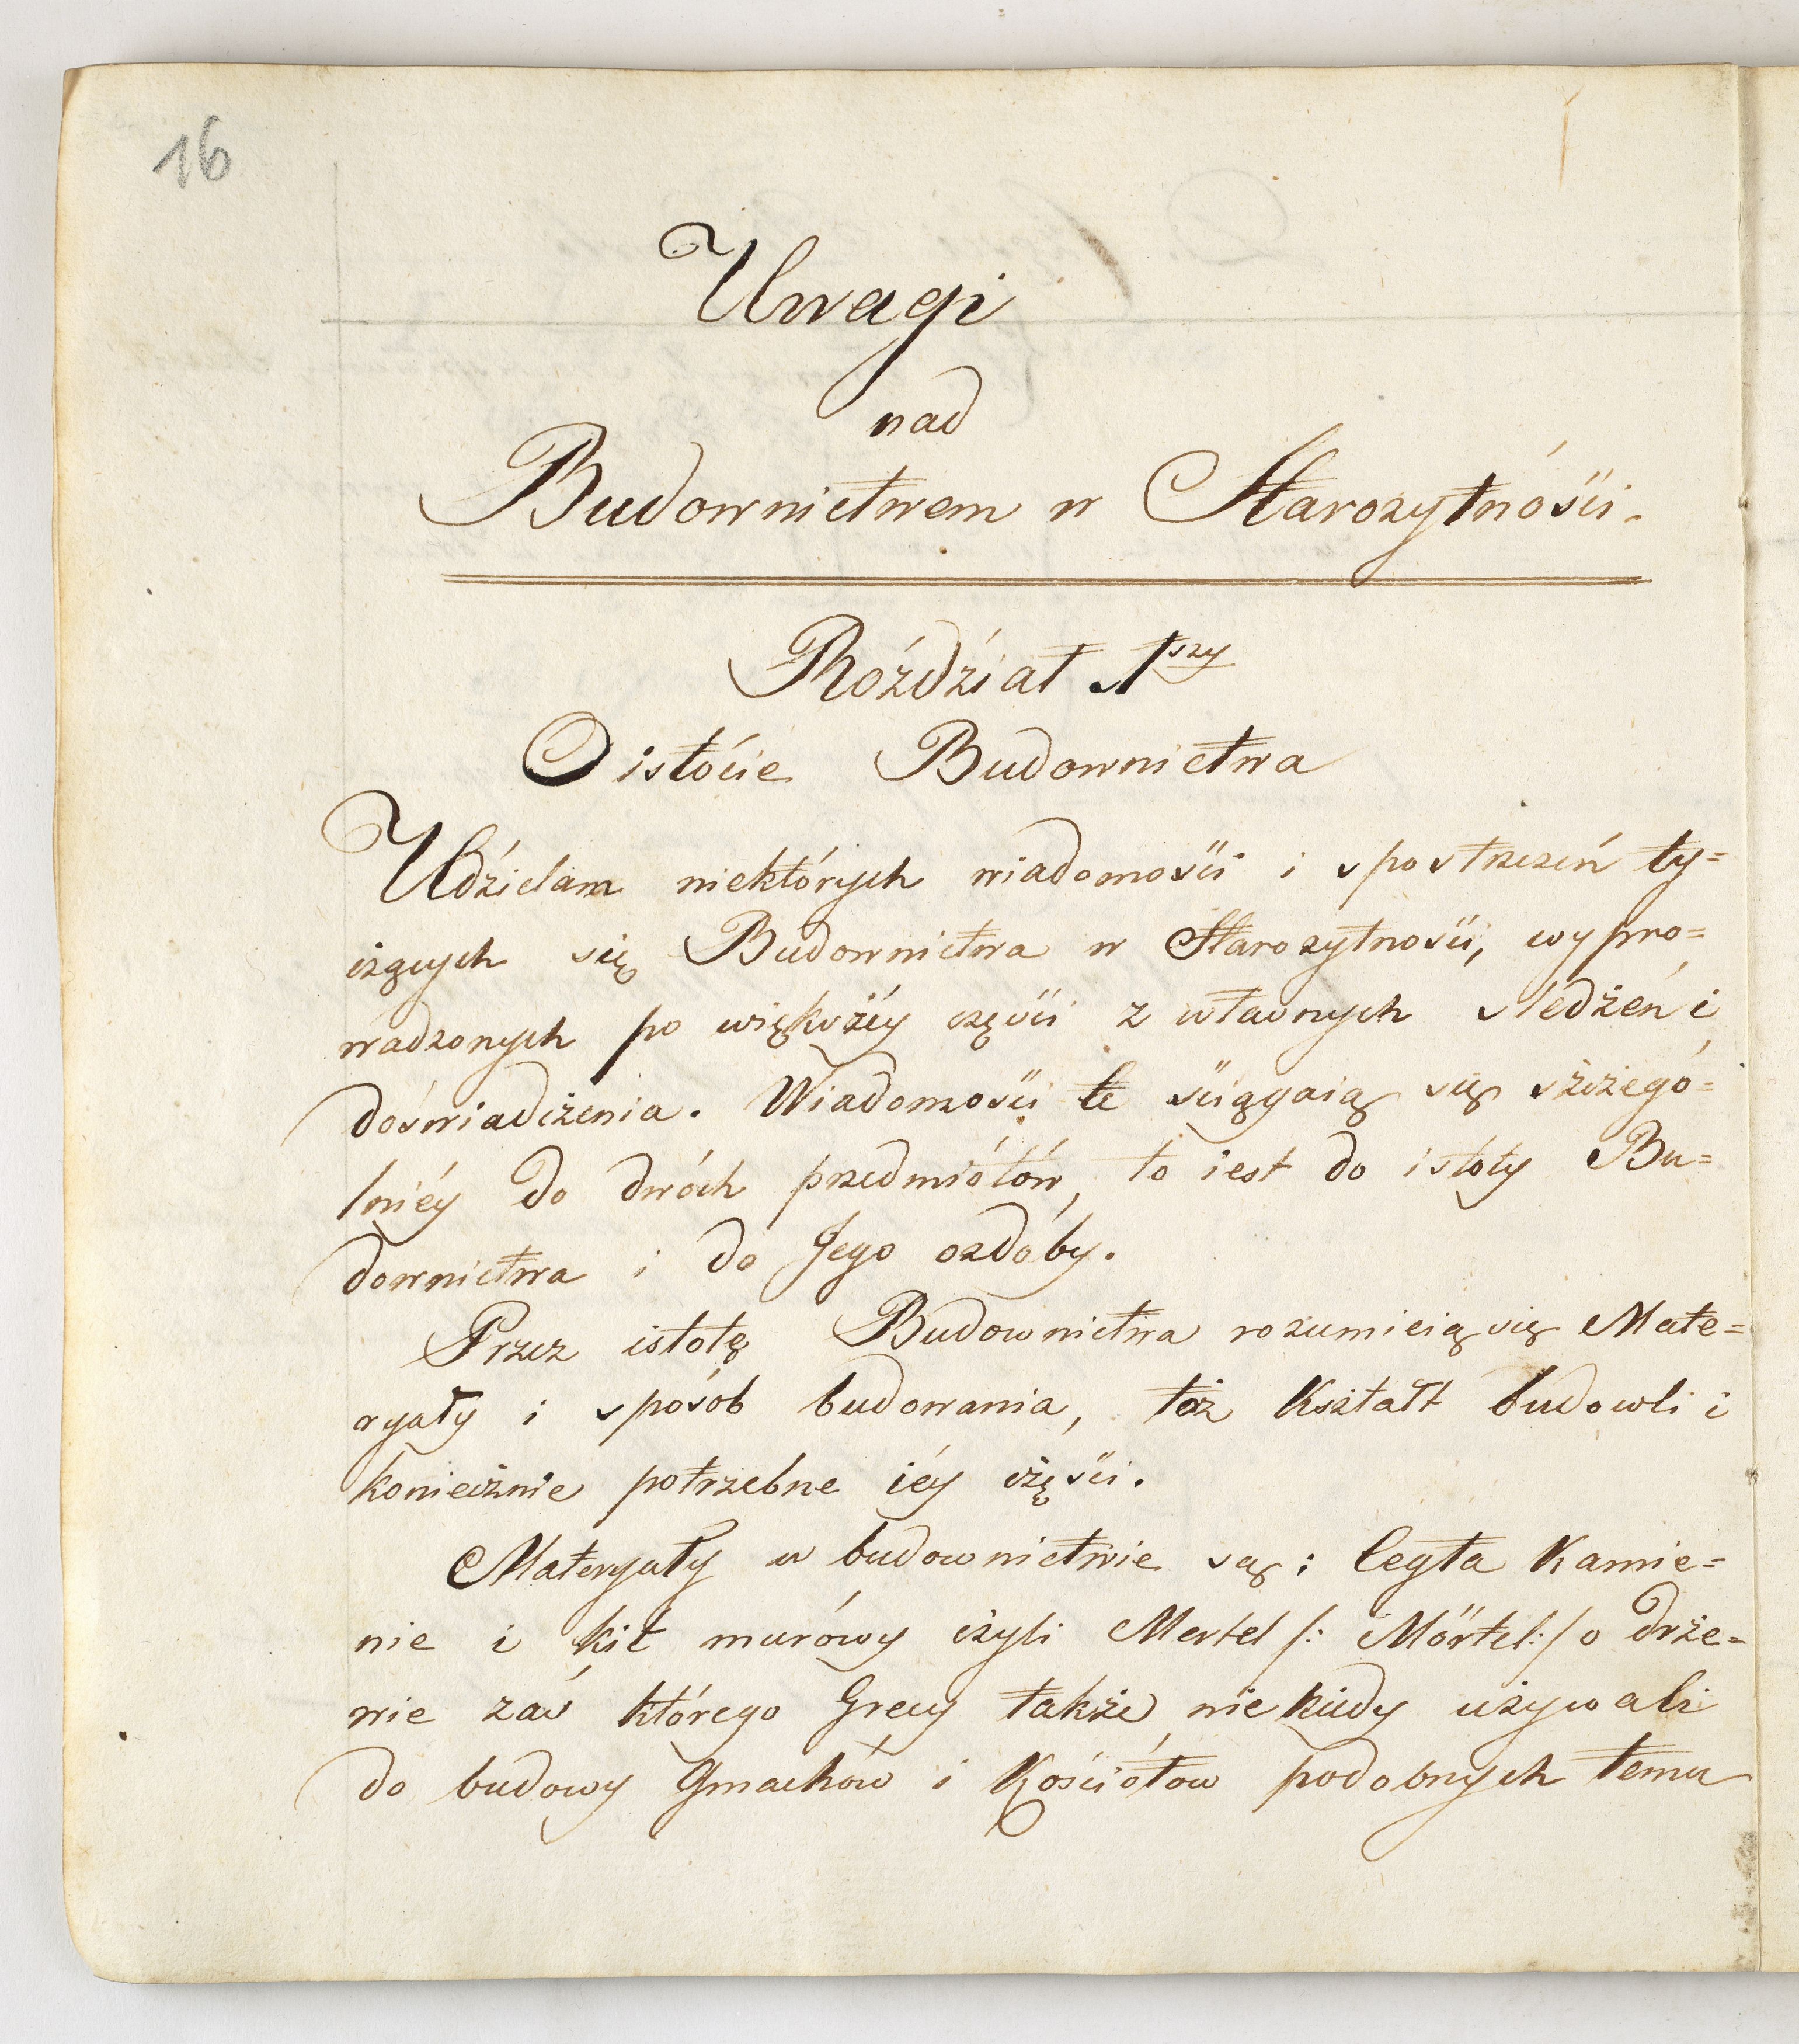 16
Uwagi
nad
Budownictwem w Starozytnósci.
Róźdźiał 1szy
O istócie Budownictwa
Udźielam niektórych wiadomośći i spostrzezeń ty=
czących się Budownictwa w Starozytnosći, wypro=
wadzonych po większéy częśći z własnych sledzeń i
doświadczenia. Wiadomośći te śćiągaią się szczegó=
lniéy do dwóch przedmiótów, to iest do istóty Bu=
downictwa i do Jego ozdóby.
Przez istotę Budownictwa rozumieią się Mate=
ryały i sposób budowania, toż Kształt budowli i
koniecznie potrzebne iéy częśći.
Materyały w budownictwie są: Cegła Kamie=
nie i kit murówy czyli Mertel /: Mörtel :/ o drze=
wie zaś którego Grecy także niekiedy używali
do budowy Gmachów i Kościółow podobnych temu